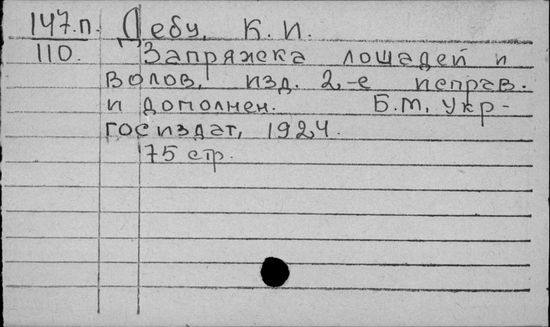 147.п. Дебу, К. И.
110. Запряжка лошадей и
волов, изд. 2,-е исправ.
и дополнен. Б.М, Укр-
госиздат, 1924.
75 стр.